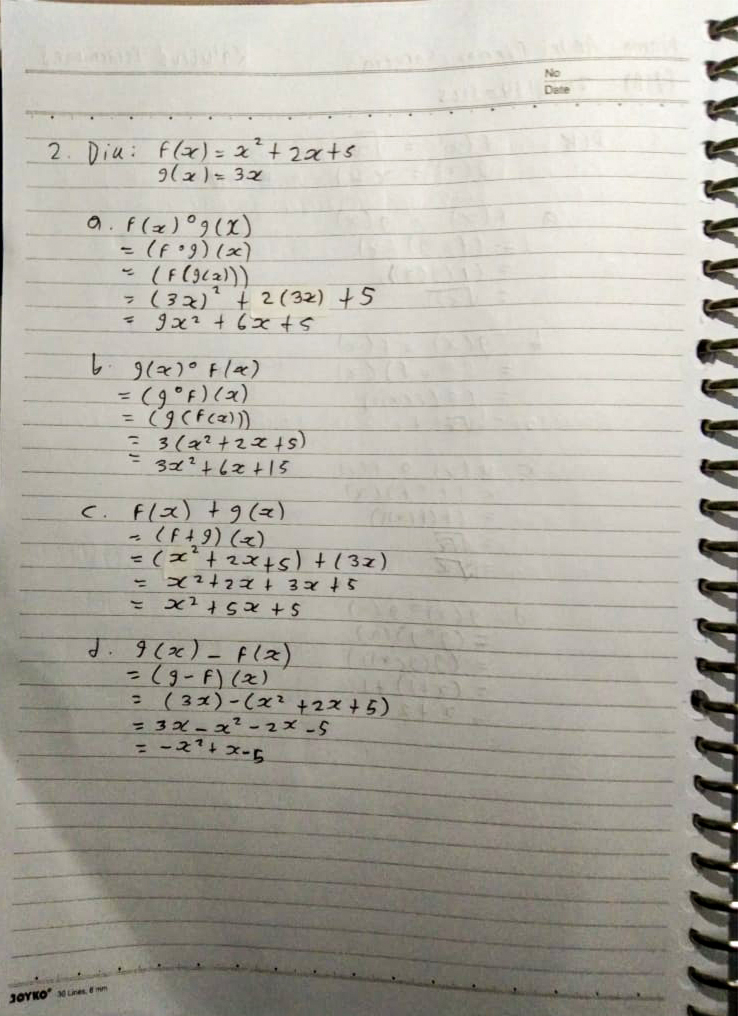 No
Date
2. Dik: f(x) = x² + 2x + 5
g(x) = 3x
a. f(x) ° g(x)
= (f ° g) (x)
= (f(g(x)))
= (3x)² + 2(3x) + 5
= 9x² + 6x + 5
b. g(x) ° f(x)
= (g ° f) (x)
= (g(f(x)))
= 3(x² + 2x + 5)
= 3x² + 6x + 15
c. f(x) + g(x)
= (f + g) (x)
= (x² + 2x + 5) + (3x)
= x² + 2x + 3x + 5
= x² + 5x + 5
d. g(x) - f(x)
= (g - f) (x)
= (3x) - (x² + 2x + 5)
= 3x - x² - 2x - 5
= -x² + x - 5
JOYKO® 30 Lines, 8 mm